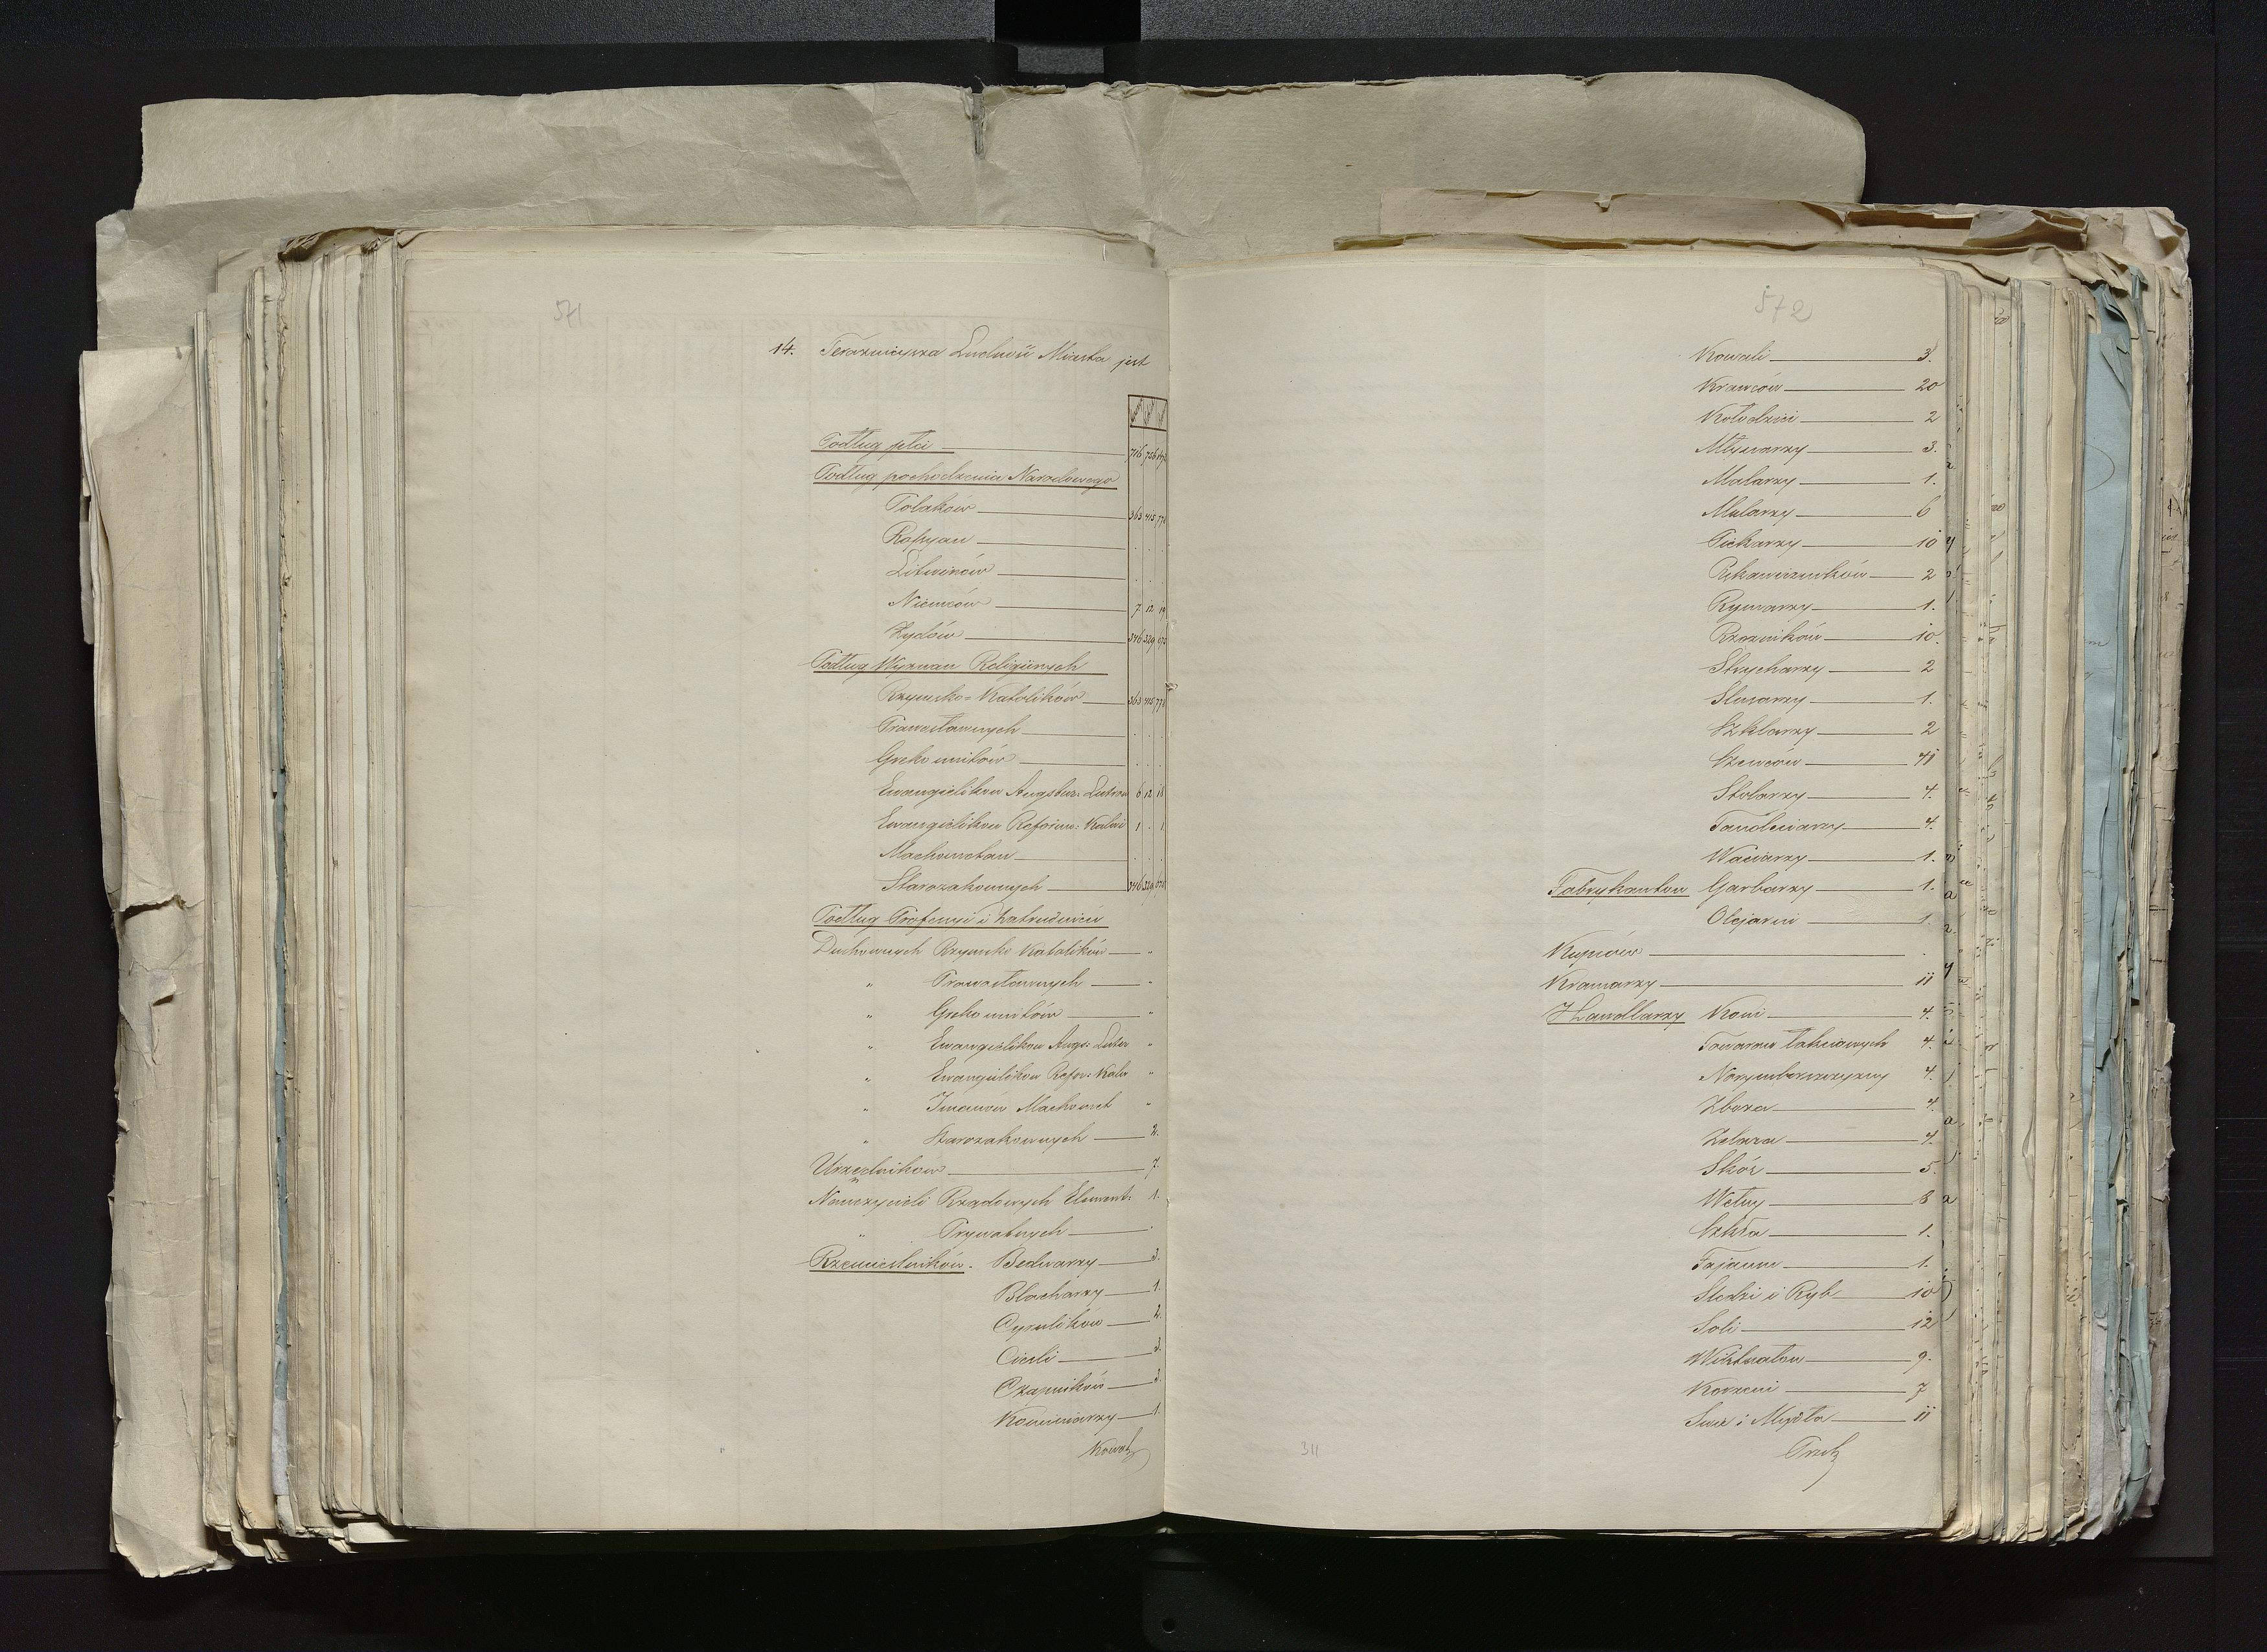 571
14. Teraznieysza Ludność Miasta jest
Podług płci 716 756
Podług pochodzenia Narodowego
Polaków 363 415 778
Rossyan . . .
Litwinów . . .
Niemców 7 12 19
Żydów 346 329 675
Podług Wyznań Religijnych
Rzymsko=Katolików 363 415 778
Prawosławnych . . .
Greko unitów . . .
Ewangielików Augsbur: Lutrów 6 12 18
Ewangielików Reform: Kalwi 1 . 1
Machometan . . .
Starozakonnych 346 329 675
Podług Professyi i zatrudnień
Duchownych Rzymsko Katolików "
" Prawosławnych "
" Greko unitów "
" Ewangielików Augs: Luter "
" Ewangielików Refor: Kalw "
" Imanów Machomet "
" Starozakonnych 2.
Urzędników 7.
Nauczycieli Rządowych Element: 1.
" Prywatnych .
Rzemieślników. Bednarzy 3.
Blacharzy 1.
Cyrulików 2.
Cieśli 3.
Czapników 3.
Kominiarzy 1.
Kowali
572
Kowali 3.
Krawców 20
Kołodziei 2
Młynarzy 3.
Malarzy 1.
Mularzy 6
Piekarzy 10
Rękawiczników 2
Rymarzy 1.
Rzeźników 10.
Strycharzy 2
Ślusarzy 1.
Szklarzy 2
Szewców 41
Stolarzy 4.
Tandeciarzy 4.
Waciarzy 1.
Fabrykantów Garbarzy 1.
Olejarni 1.
Kupców .
Kramarzy 11
Handlarzy Koni 4.
Towarów łokciowych 4.
Norymberszczyzny 4.
Zboża 4.
Żelaza 4.
Skór 5.
Wełny 8
Szkła 1.
Fajansu 1.
Śledzi i Ryb 10
Soli 12
Wiktuałów 9.
Korzeni 7
Świec i Mydła 11
311